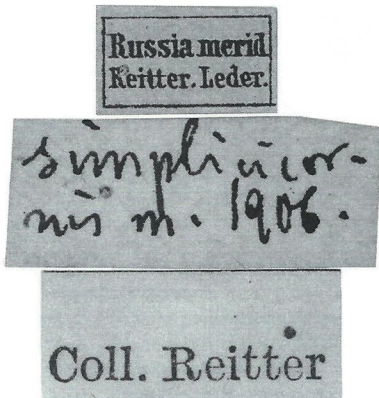 Russia merid
Reitter. Leder.
simplicicor-
nis m. 1906.
Coll. Reitter